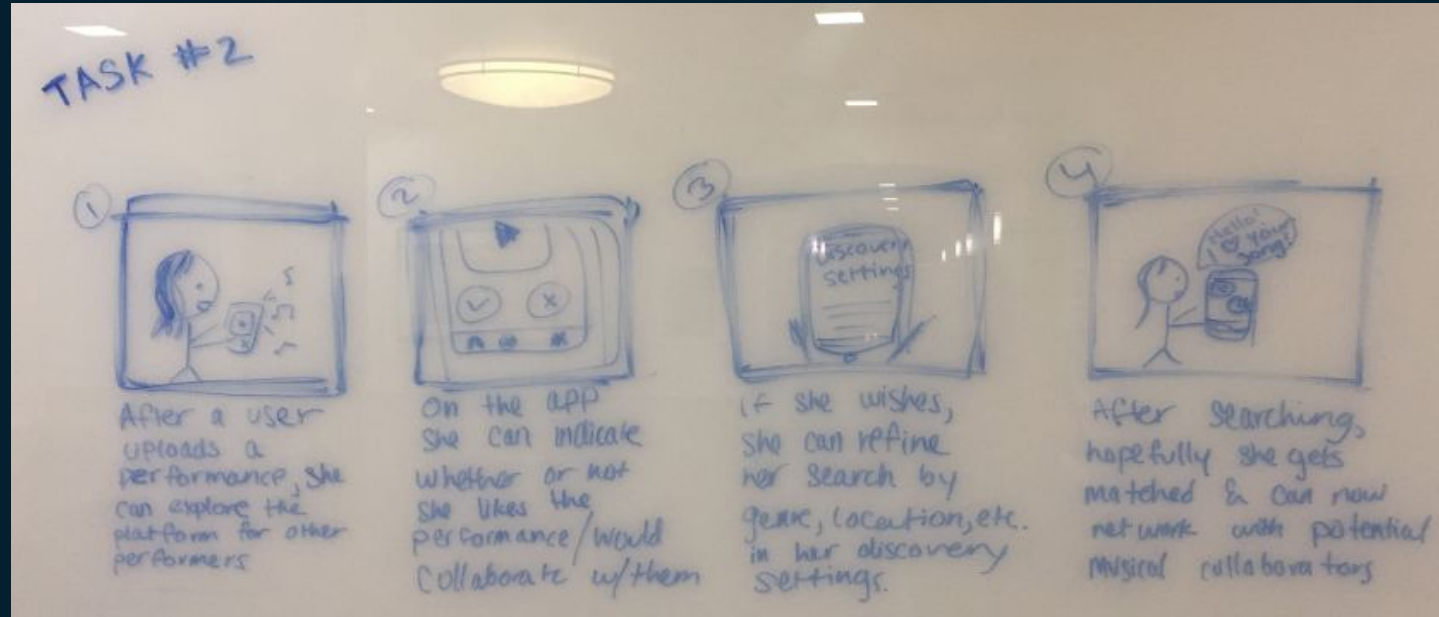 TASK #2
1
After a user
uploads a
performance, she
can explore the
platform for other
performers
2
On the app
she can indicate
whether or not
she likes the
performance/would
collaborate w/them
3
Discovery
settings
if she wishes,
she can refine
her search by
genre, location, etc.
in her discovery
settings.
4
Hello!
I ♡ your
song!
After searching,
hopefully she gets
matched & can now
network with potential
musical collaborators